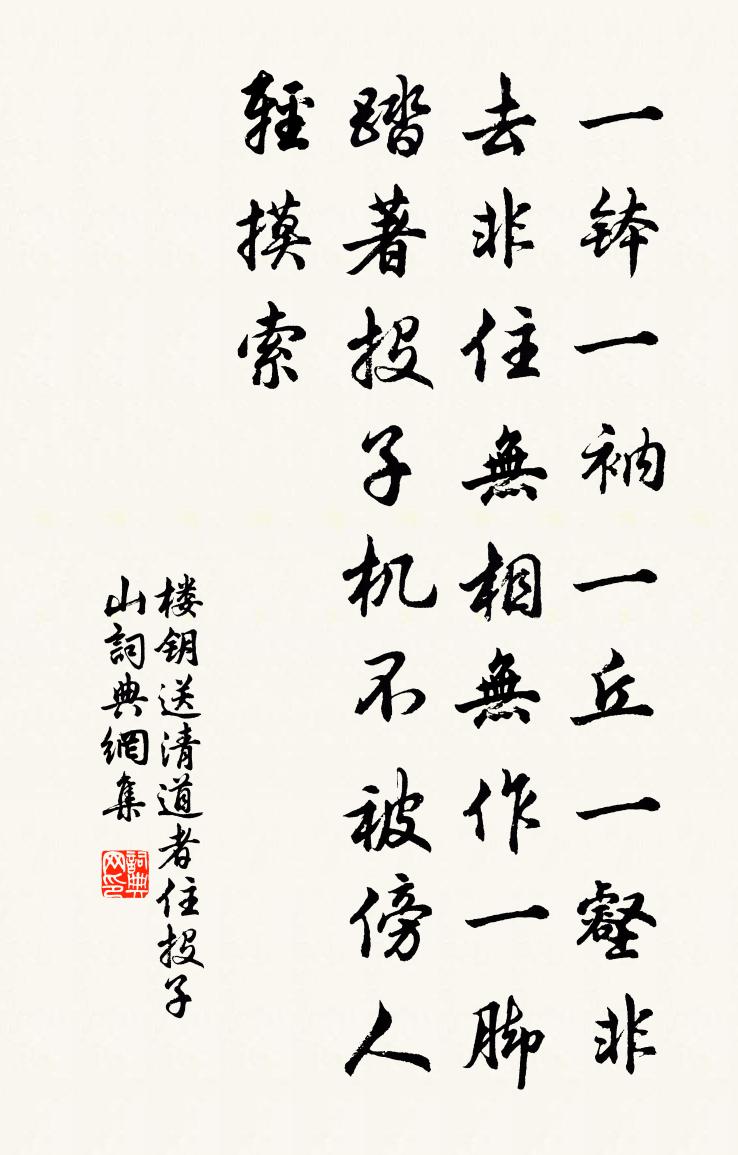 一钵一衲一丘一壑非
去非住無相無作一脚
踏著投子机不被傍人
輕摸索
楼钥送清道者住投子
山詞典網集
詞典
网印